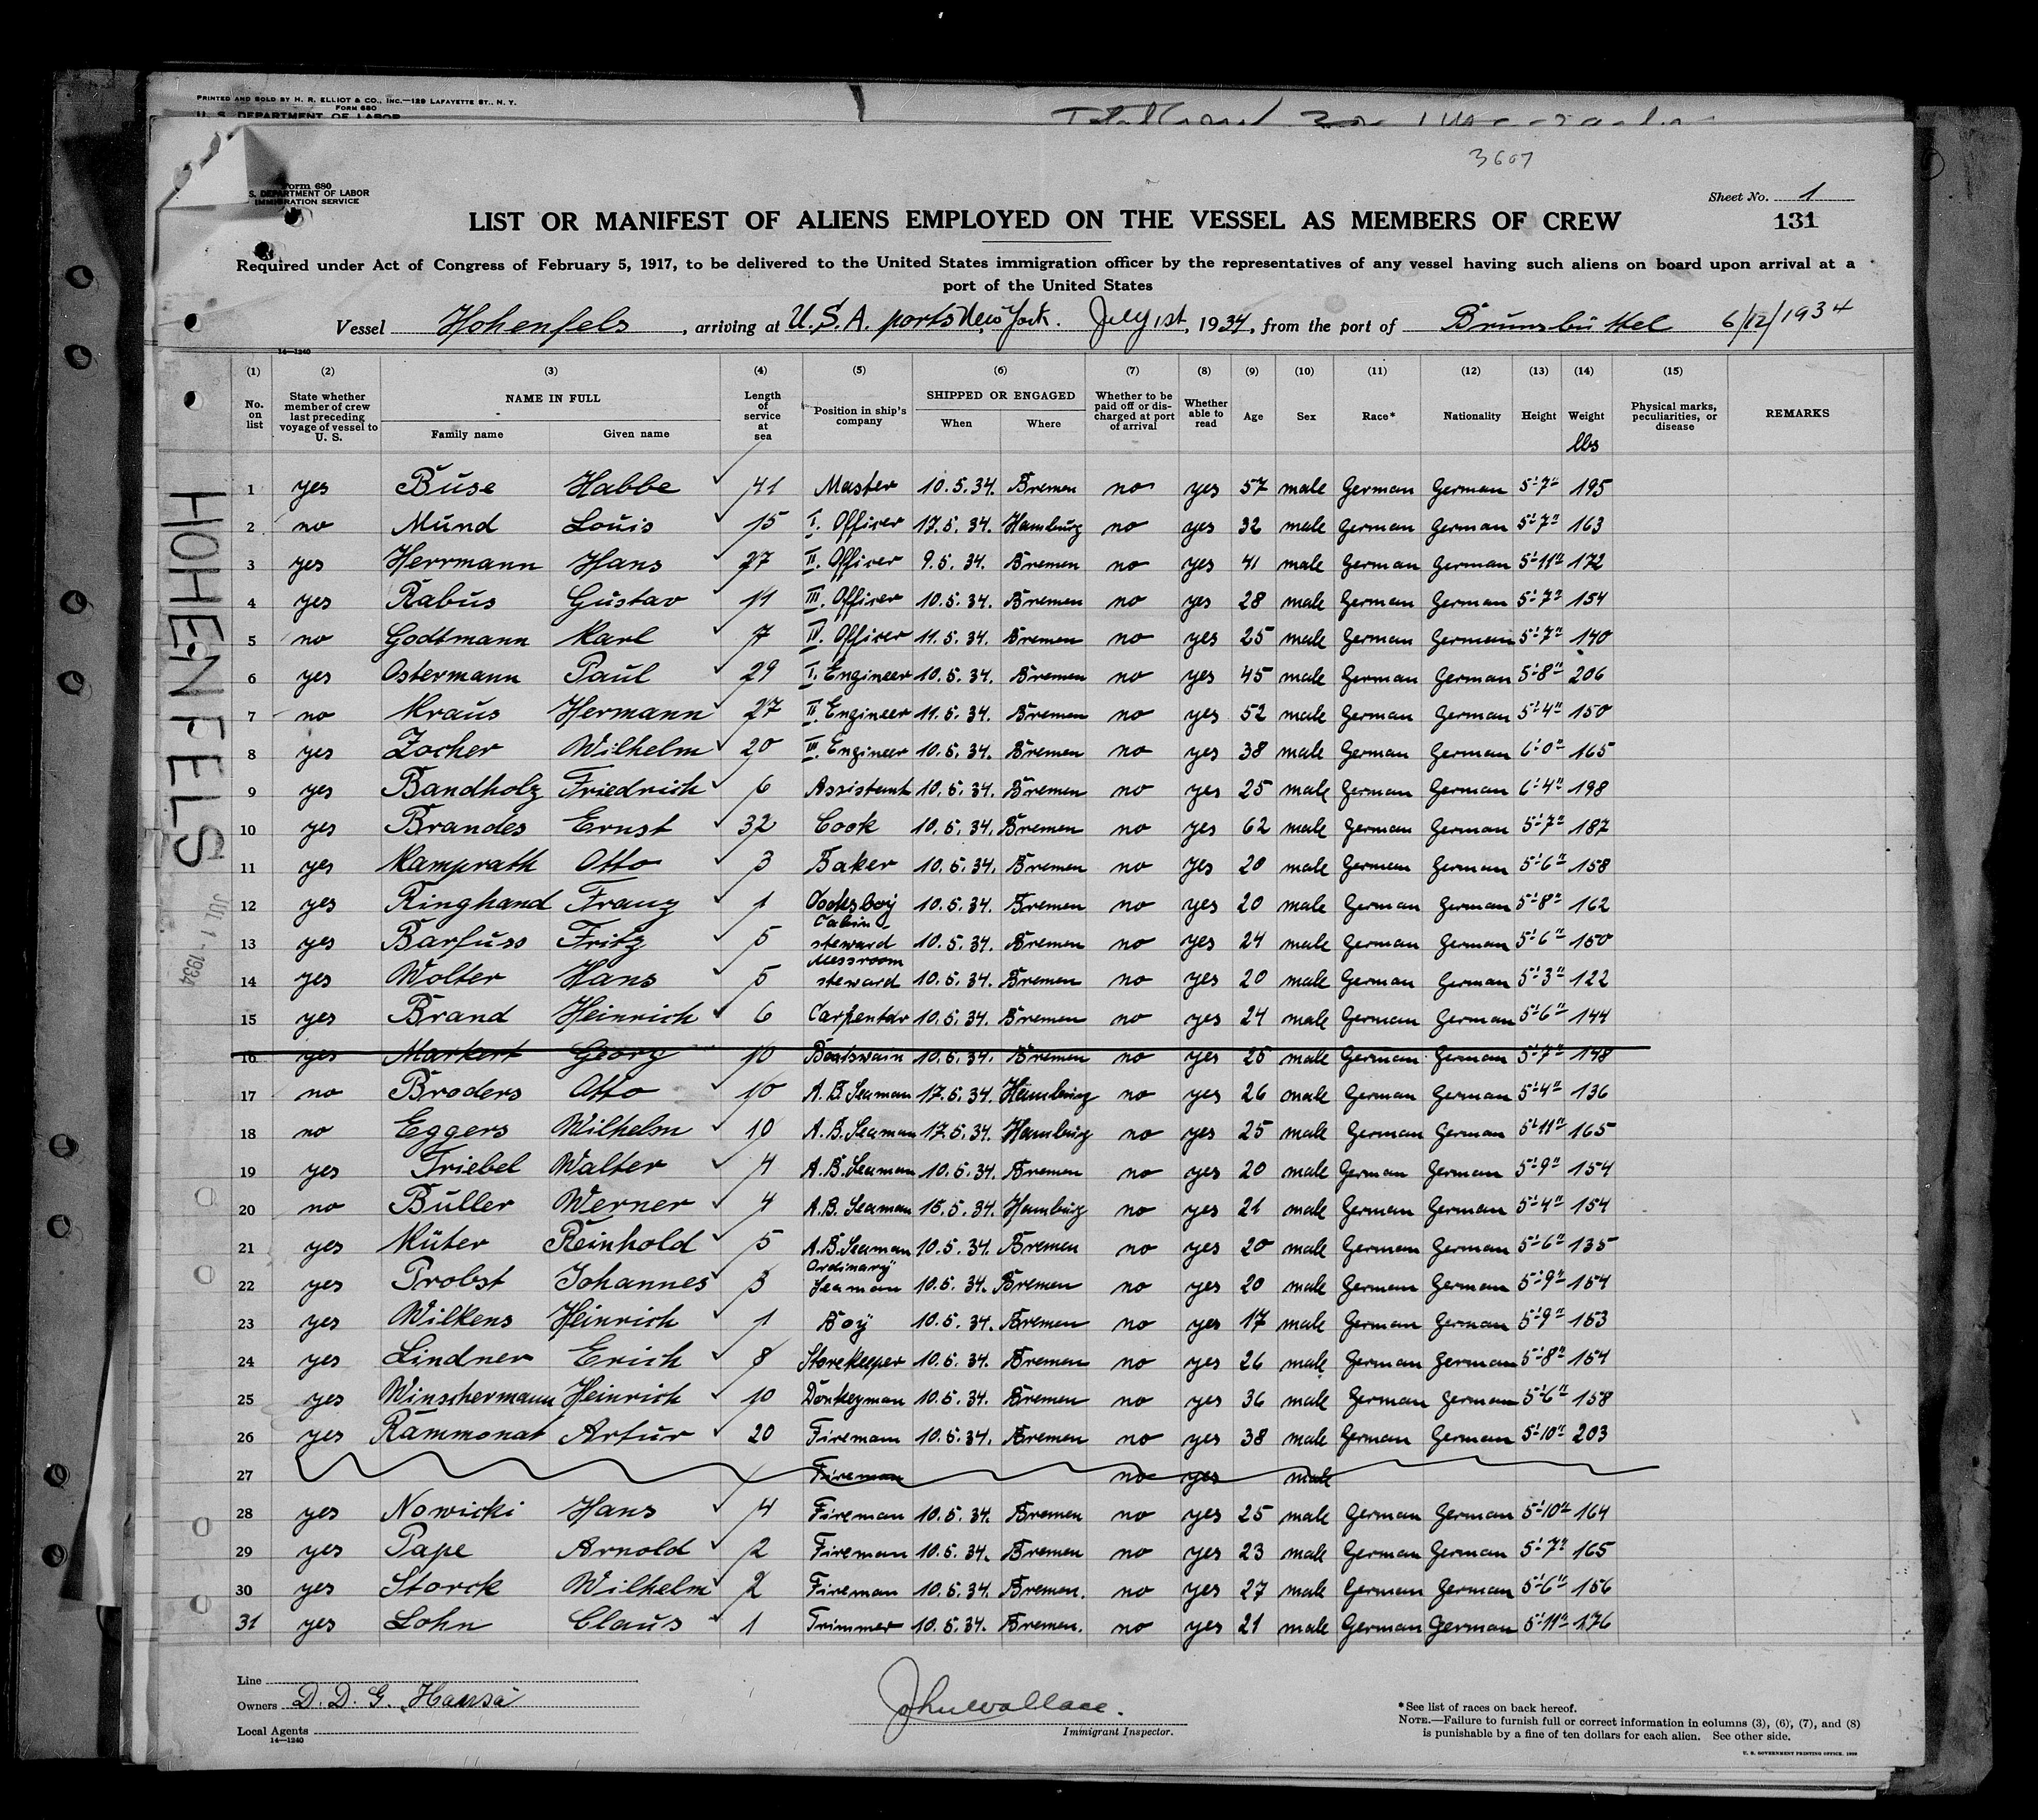 PRINTED AND SOLD BY H. R. ELLIOT & CO., INC.—129 LAFAYETTE ST., N. Y.
FORM 680
U. S. DEPARTMENT OF LABOR
3607
Form 680
S. DEPARTMENT OF LABOR
IMMIGRATION SERVICE
Sheet No. 1
LIST OR MANIFEST OF ALIENS EMPLOYED ON THE VESSEL AS MEMBERS OF CREW
131
Required under Act of Congress of February 5, 1917, to be delivered to the United States immigration officer by the representatives of any vessel having such aliens on board upon arrival at a
port of the United States
Vessel Hohenfels, arriving at U.S.A. ports New York. July 1st, 1934, from the port of Brunsbüttel 6/12/1934
14—1240
(1) (2) (3) (4) (5) (6) (7) (8) (9) (10) (11) (12) (13) (14) (15)
No. on list | State whether member of crew last preceding voyage of vessel to U. S. | NAME IN FULL | Family name | Given name | Length of service at sea | Position in ship's company | SHIPPED OR ENGAGED | When | Where | Whether to be paid off or discharged at port of arrival | Whether able to read | Age | Sex | Race* | Nationality | Height | Weight lbs | Physical marks, peculiarities, or disease | REMARKS
1 yes Buse Habbe 41 Master 10.5.34. Bremen no yes 57 male German German 5'7" 195
2 no Mund Louis 15 I. Officer 17.5.34. Hamburg no yes 32 male German German 5'7" 163
3 yes Herrmann Hans 27 II. Officer 9.5.34. Bremen no yes 41 male German German 5'11" 172
4 yes Rabus Gustav 11 III. Officer 10.5.34. Bremen no yes 28 male German German 5'7" 154
5 no Godtmann Karl 7 IV. Officer 11.5.34. Bremen no yes 25 male German German 5'7" 140
6 yes Ostermann Paul 29 I. Engineer 10.5.34. Bremen no yes 45 male German German 5'8" 206
7 no Kraus Hermann 27 II. Engineer 11.5.34. Bremen no yes 52 male German German 5'4" 150
8 yes Zocher Wilhelm 20 III. Engineer 10.5.34. Bremen no yes 38 male German German 6'0" 165
9 yes Bandholz Friedrich 6 Assistant 10.5.34. Bremen no yes 25 male German German 6'4" 198
10 yes Brandes Ernst 32 Cook 10.5.34. Bremen no yes 62 male German German 5'7" 187
11 yes Kamprath Otto 3 Baker 10.5.34. Bremen no yes 20 male German German 5'6" 158
12 yes Ringhand Franz 1 Cooksboy 10.5.34. Bremen no yes 20 male German German 5'8" 162
13 yes Barfuss Fritz 5 Cabin steward 10.5.34. Bremen no yes 24 male German German 5'6" 150
14 yes Wolter Hans 5 Messroom steward 10.5.34. Bremen no yes 20 male German German 5'3" 122
15 yes Brand Heinrich 6 Carpenter 10.5.34. Bremen no yes 24 male German German 5'6" 144
16 yes Markert Georg 10 Boatswain 10.5.34. Bremen no yes 25 male German German 5'7" 148
17 no Broders Otto 10 A.B. Seaman 17.5.34. Hamburg no yes 26 male German German 5'4" 136
18 no Eggers Wilhelm 10 A.B. Seaman 17.5.34. Hamburg no yes 25 male German German 5'11" 165
19 yes Triebel Walter 4 A.B. Seaman 10.5.34. Bremen no yes 20 male German German 5'9" 154
20 no Buller Werner 4 A.B. Seaman 15.5.34. Hamburg no yes 21 male German German 5'4" 154
21 yes Küter Reinhold 5 A.B. Seaman 10.5.34. Bremen no yes 20 male German German 5'6" 135
22 yes Probst Johannes 3 Ordinary Seaman 10.5.34. Bremen no yes 20 male German German 5'9" 154
23 yes Wilkens Heinrich 1 Boy 10.5.34. Bremen no yes 17 male German German 5'9" 153
24 yes Lindner Erich 8 Storekeeper 10.5.34. Bremen no yes 26 male German German 5'8" 154
25 yes Winschermann Heinrich 10 Donkeyman 10.5.34. Bremen no yes 36 male German German 5'6" 158
26 yes Rammonat Artur 20 Fireman 10.5.34. Bremen no yes 38 male German German 5'10" 203
27 Fireman no yes male
28 yes Nowicki Hans 4 Fireman 10.5.34. Bremen no yes 25 male German German 5'10" 164
29 yes Pape Arnold 2 Fireman 10.5.34. Bremen no yes 23 male German German 5'7" 165
30 yes Storck Wilhelm 2 Fireman 10.5.34. Bremen. no yes 27 male German German 5'6" 156
31 yes Lohn Claus 1 Trimmer 10.5.34. Bremen. no yes 21 male German German 5'11" 176
HOHENFELS
JUL 1 - 1934
Line
Owners D. D. G. Hansa
Local Agents
14—1240
John Wallace.
Immigrant Inspector.
*See list of races on back hereof.
NOTE.—Failure to furnish full or correct information in columns (3), (6), (7), and (8)
is punishable by a fine of ten dollars for each alien. See other side.
U. S. GOVERNMENT PRINTING OFFICE.